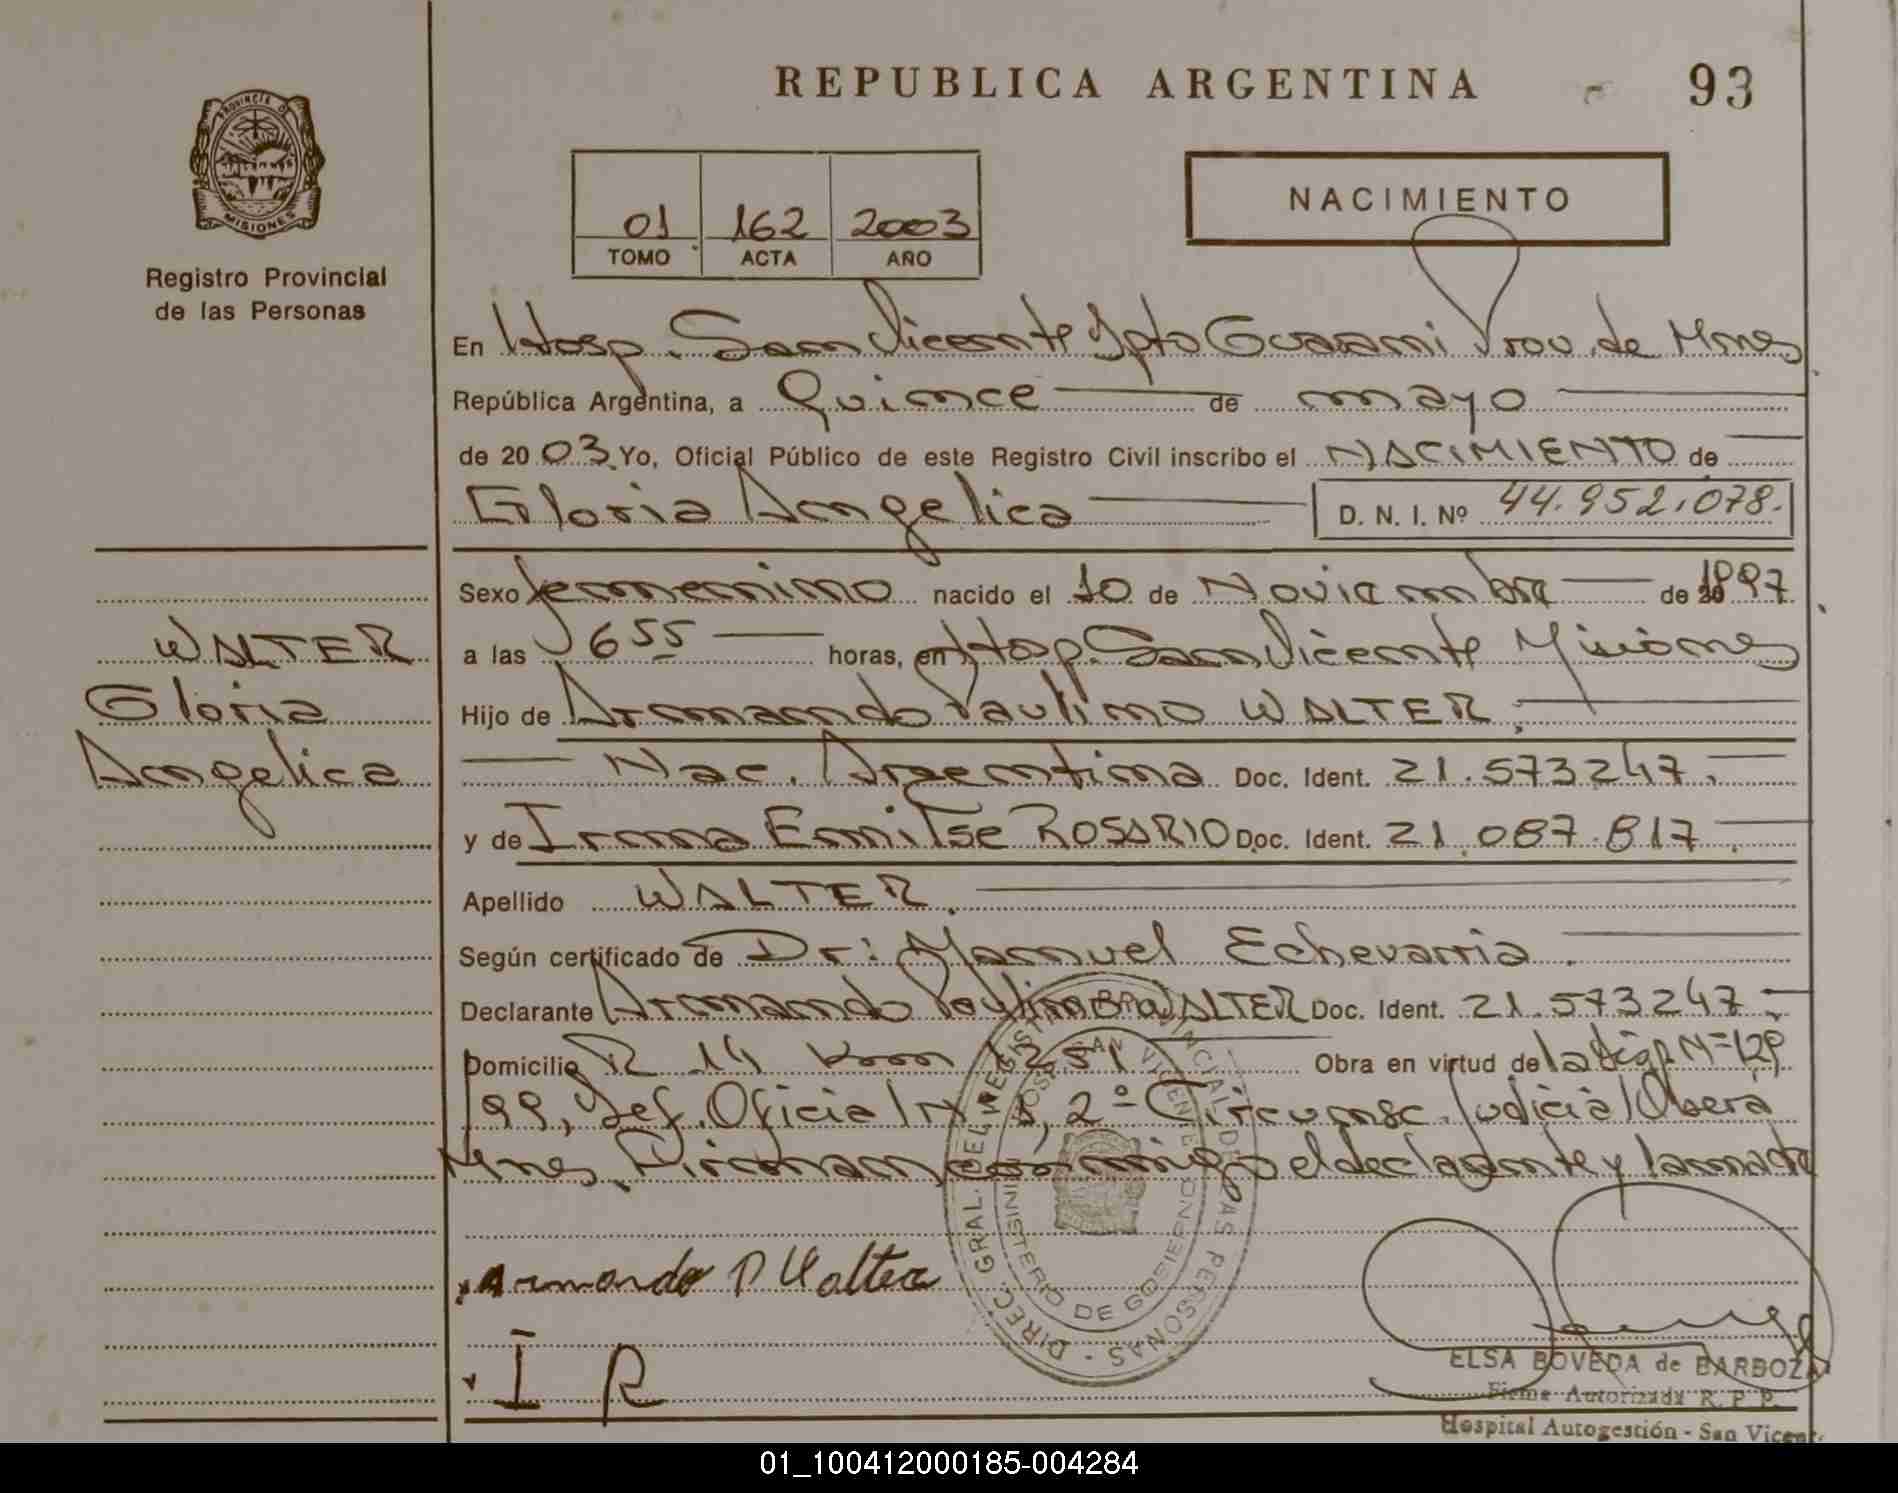 REPUBLICA ARGENTINA
93
PROVINCIA DE
MISIONES
Registro Provincial
de las Personas
01 162 2003
TOMO ACTA AÑO
NACIMIENTO
En Hosp. San Vicente Dpto Guarani Prov. de Mnes
República Argentina, a Quince de mayo
de 20 03. Yo, Oficial Público de este Registro Civil inscribo el NACIMIENTO de
Gloria Angelica D. N. I. Nº 44.952.078.
Sexo femenino nacido el 10 de Noviembre de 1997
a las 6 55 horas, en Hosp. San Vicente Misiones
Hijo de Armando Paulino WALTER.
Nac. Argentina Doc. Ident. 21.573247.
y de Irma Emilse ROSARIO Doc. Ident. 21.087.817.
Apellido WALTER.
Según certificado de Dr: Manuel Echevarria.
Declarante Armando Paulino WALTER Doc. Ident. 21.573247.
Domicilio R 14 km 1251 Obra en virtud de la disp N=129
/99, Jef. Oficial N 1, 2º Circunsc. Judicial Oberá
Mnes. Firman conmigo el declarante y la madre
WALTER
Gloria
Angelica
DIREC. GRAL. DEL REGISTRO PROVINCIAL DE LAS PERSONAS
HOSP. SAN VICENTE
MINISTERIO DE GOBIERNO
Armando P Walter
I R
ELSA BOVEDA de BARBOZA
Firma Autorizada R. P. P.
Hospital Autogestión - San Vicente
01_100412000185-004284